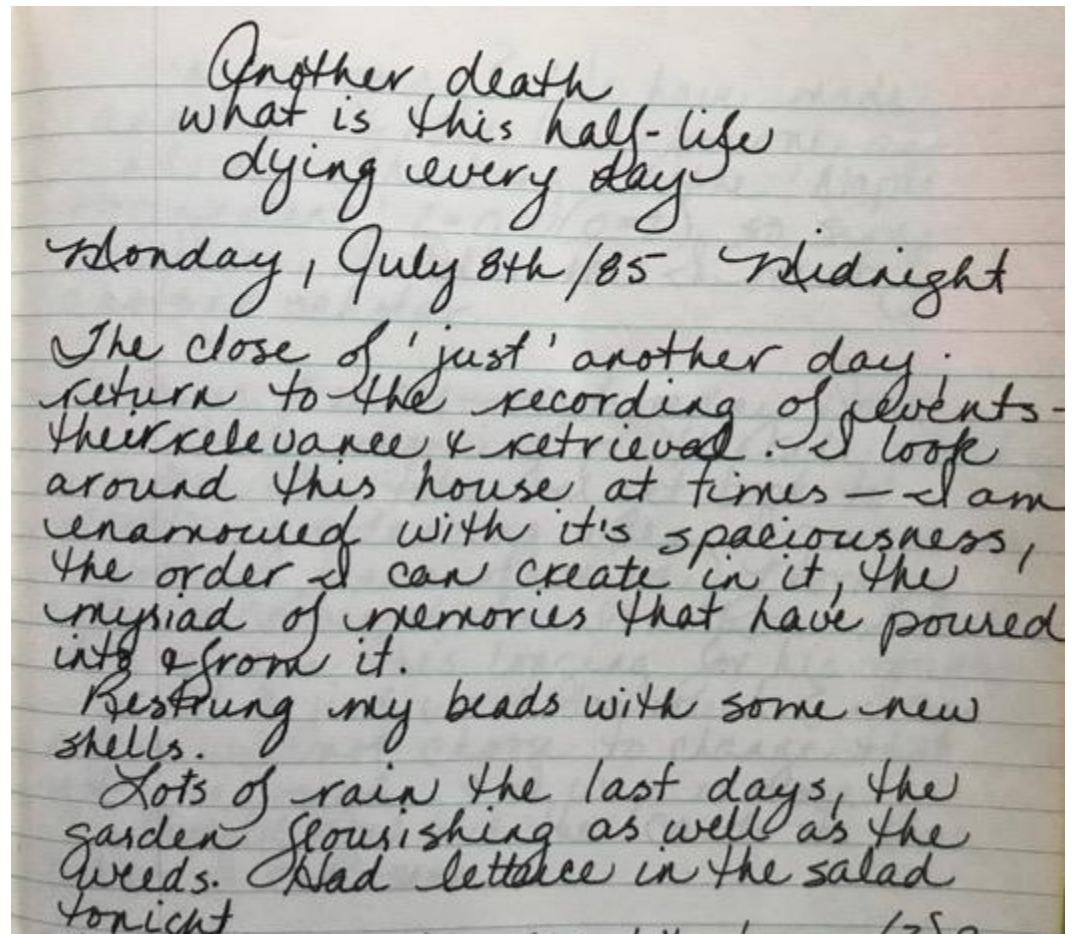 Another death
what is this half-life
dying every day
Monday, July 8th/85 Midnight
The close of 'just' another day;
return to the recording of events-
their relevance & retrieval. I look
around this house at times — I am
enamoured with it's spaciousness,
the order I can create in it, the
myriad of memories that have poured
into & from it.
Restrung my beads with some new
shells.
Lots of rain the last days, the
garden flourishing as well as the
weeds. Had lettuce in the salad
tonight